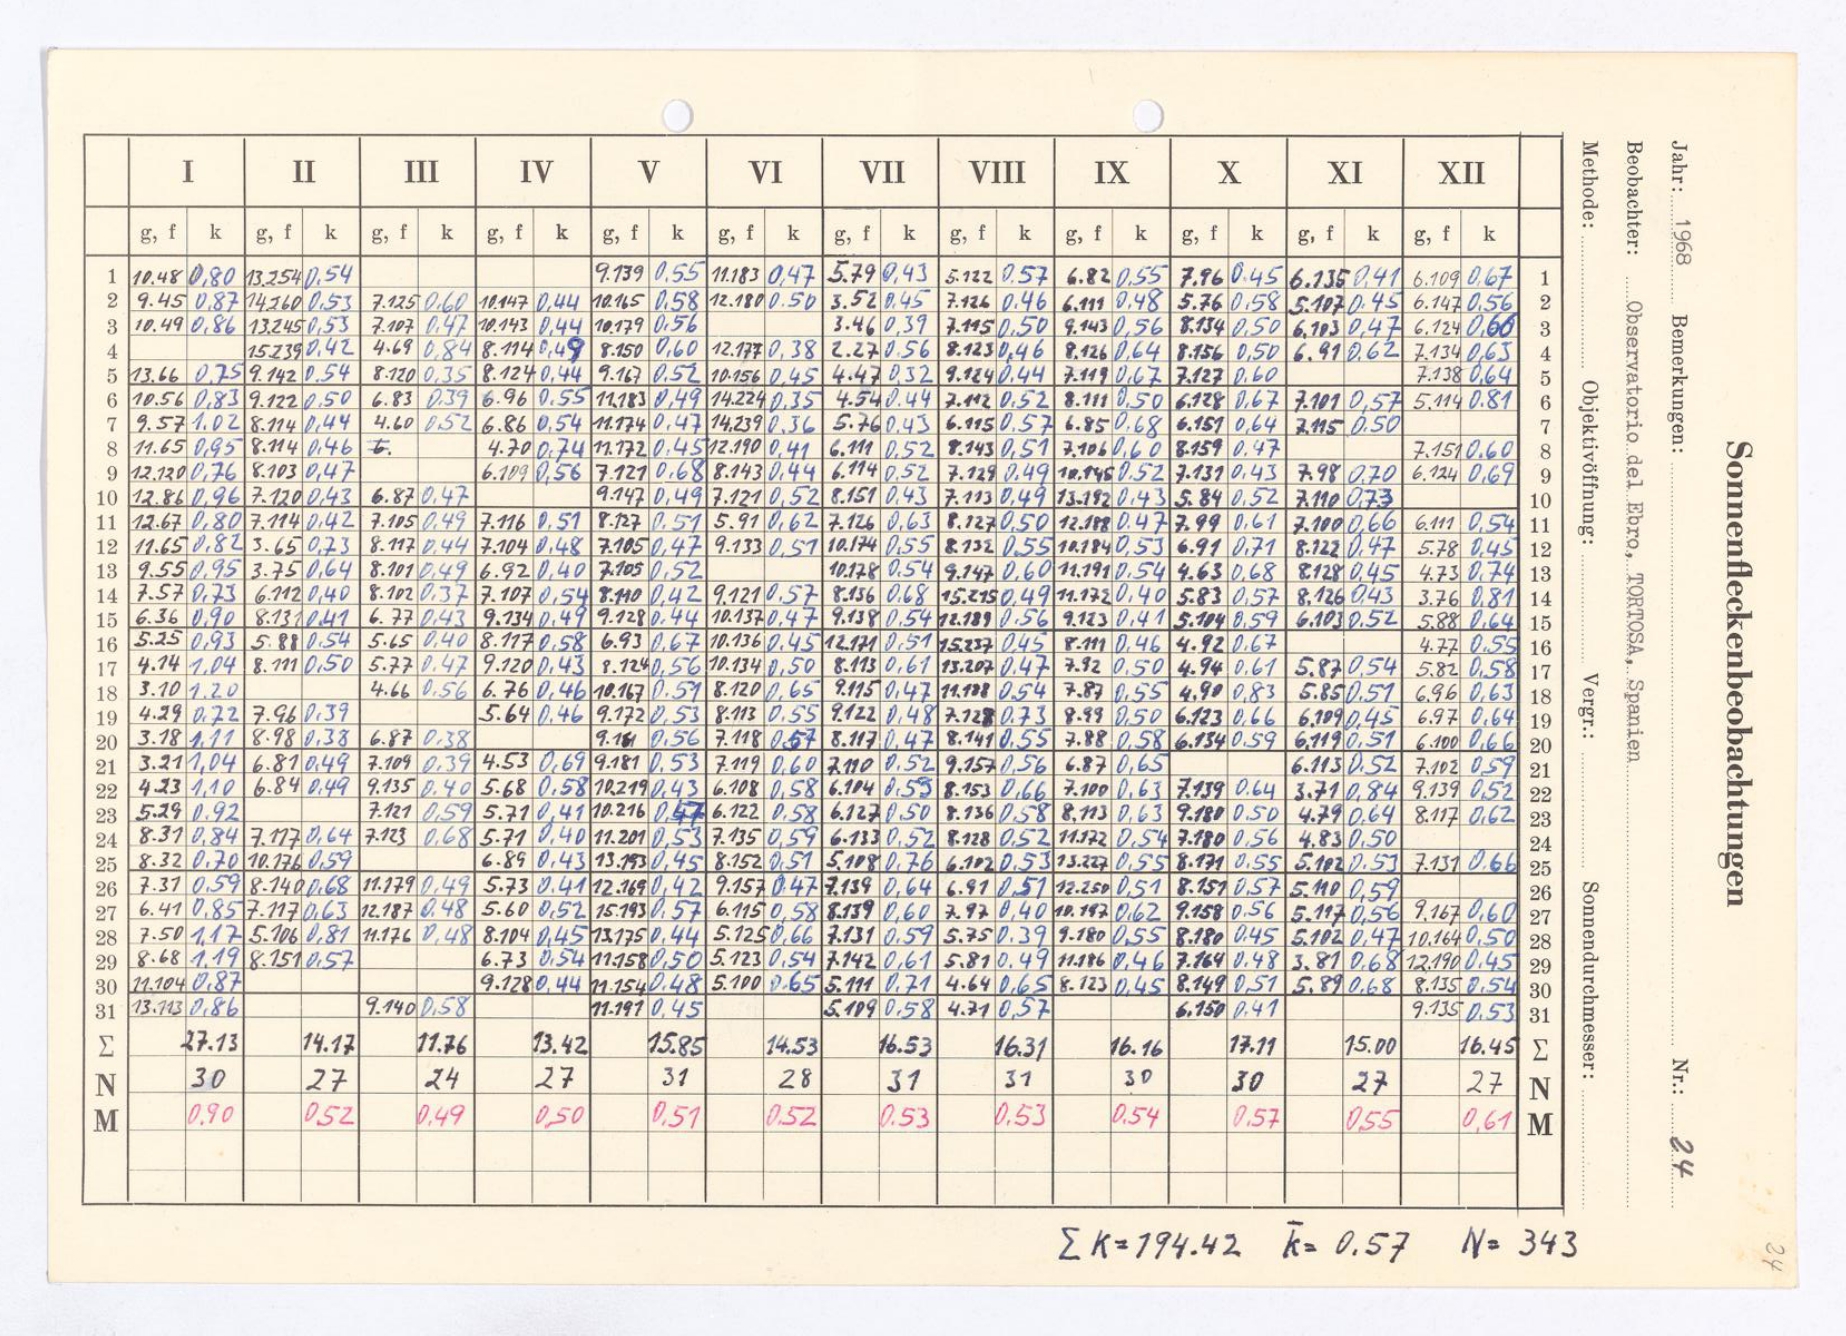 I II III IV V VI VII VIII IX X XI XII
g, f k g, f k g, f k g, f k g, f k g, f k g, f k g, f k g, f k g, f k g, f k g, f k
1 10.48 0,80 13.254 0,54 9.139 0,55 11.183 0,47 5.79 0,43 5.122 0,57 6.82 0,55 7.96 0.45 6.135 0,41 6.109 0,67 1
2 9.45 0,87 14.260 0,53 7.125 0,60 10.147 0,44 10.165 0,58 12.180 0,50 3.52 0,45 7.126 0.46 6.111 0,48 5.76 0,58 5.107 0,45 6.147 0,56 2
3 10.49 0,86 13.245 0,53 7.107 0,47 10.143 0,44 10.179 0,56 3.46 0,39 7.115 0,50 9.143 0,56 8.134 0,50 6.103 0,47 6.124 0,60 3
4 15.239 0,42 4.69 0,84 8.114 0,49 8.150 0,60 12.177 0,38 2.27 0,56 8.123 0,46 8.126 0,64 8.156 0,50 6.91 0,62 7.134 0,63 4
5 13.66 0,75 9.142 0,54 8.120 0,35 8.124 0,44 9.167 0,52 10.156 0,45 4.47 0,32 9.124 0,44 7.119 0,67 7.127 0,60 7.138 0,64 5
6 10.56 0,83 9.122 0,50 6.83 0,39 6.96 0,55 11.183 0,49 14.224 0,35 4.54 0.44 7.112 0,52 8.111 0,50 6.128 0,67 7.101 0,57 5.114 0.81 6
7 9.57 1.02 8.114 0,44 4.60 0,52 6.86 0,54 11.174 0,47 14.239 0,36 5.76 0,43 6.115 0,57 6.85 0,68 6.151 0,64 7.115 0,50 7
8 11.65 0,95 8.114 0,46 4.70 0,74 11.172 0,45 12.190 0,41 6.111 0,52 8.143 0,51 7.106 0,60 8.159 0,47 7.151 0,60 8
9 12.120 0,76 8.103 0,47 6.109 0,56 7.121 0,68 8.143 0,44 6.114 0,52 7.129 0.49 10.145 0,52 7.131 0,43 7.98 0,70 6.124 0,69 9
10 12.86 0,96 7.120 0,43 6.87 0,47 9.147 0,49 7.121 0,52 8.151 0,43 7.113 0,49 13.192 0,43 5.84 0,52 7.110 0,73 10
11 12.67 0,80 7.114 0,42 7.105 0,49 7.116 0,51 8.127 0,51 5.91 0,62 7.126 0,63 8.127 0,50 12.188 0.47 7.99 0,61 7.100 0,66 6.111 0,54 11
12 11.65 0,82 3.65 0,73 8.117 0,44 7.104 0,48 7.105 0,47 9.133 0,51 10.174 0,55 8.132 0,55 10.184 0,53 6.91 0,71 8.122 0,47 5.78 0,45 12
13 9.55 0,95 3.75 0,64 8.101 0,49 6.92 0,40 7.105 0,52 10.178 0,54 9.147 0,60 11.191 0,54 4.63 0,68 8.128 0,45 4.73 0,74 13
14 7.57 0,73 6.112 0,40 8.102 0,37 7.107 0,54 8.110 0,42 9.121 0,57 8.136 0,68 15.215 0,49 11.172 0,40 5.83 0,57 8.126 0,43 3.76 0,81 14
15 6.36 0,90 8.131 0,41 6.77 0,43 9.134 0,49 9.128 0,44 10.137 0,47 9.138 0,54 12.189 0,56 9.123 0,41 5.104 0,59 6.103 0,52 5.88 0,64 15
16 5.25 0,93 5.88 0,54 5.65 0,40 8.117 0,58 6.93 0,67 10.136 0,45 12.171 0,51 15.237 0,45 8.111 0,46 4.92 0,67 4.77 0,55 16
17 4.14 1,04 8.111 0,50 5.77 0,47 9.120 0,43 8.124 0,56 10.134 0,50 8.113 0,61 13.207 0,47 7.92 0,50 4.94 0,61 5.87 0,54 5.82 0,58 17
18 3.10 1.20 4.66 0,56 6.76 0,46 10.167 0.51 8.120 0,65 9.115 0,47 11.188 0,54 7.87 0,55 4.90 0,83 5.85 0,51 6.96 0,63 18
19 4.29 0,72 7.96 0,39 5.64 0,46 9.172 0,53 8.113 0.55 9.122 0,48 7.128 0,73 8.99 0,50 6.123 0,66 6.109 0,45 6.97 0,64 19
20 3.18 1,11 8.98 0,38 6.87 0,38 9.161 0,56 7.118 0,57 8.117 0,47 8.141 0,55 7.88 0,58 6.134 0,59 6.119 0,51 6.100 0,66 20
21 3.21 1,04 6.81 0,49 7.109 0,39 4.53 0,69 9.181 0,53 7.119 0,60 7.110 0,52 9.157 0,56 6.87 0,65 6.113 0,52 7.102 0,59 21
22 4.23 1,10 6.84 0,49 9.135 0,40 5.68 0,58 10.219 0,43 6.108 0,58 6.104 0,59 8.153 0,66 7.100 0,63 7.139 0,64 3.71 0,84 9.139 0,52 22
23 5.29 0.92 7.121 0,59 5.71 0,41 10.216 0,47 6.122 0,58 6.127 0,50 8.136 0,58 8.113 0,63 9.180 0,50 4.79 0,64 8.117 0,62 23
24 8.31 0,84 7.117 0,64 7.123 0,68 5.71 0,40 11.201 0,53 7.135 0,59 6.133 0,52 8.128 0,52 11.172 0,54 7.180 0,56 4.83 0,50 24
25 8.32 0,70 10.176 0,59 6.89 0,43 13.193 0,45 8.152 0,51 5.108 0,76 6.102 0,53 13.227 0,55 8.171 0,55 5.102 0.53 7.131 0.66 25
26 7.31 0,59 8.140 0,68 11.179 0,49 5.73 0.41 12.169 0,42 9.157 0,47 7.139 0,64 6.91 0,51 12.250 0,51 8.151 0,57 5.110 0,59 26
27 6.41 0,85 7.117 0,63 12.187 0.48 5.60 0,52 15.193 0,57 6.115 0,58 8.139 0,60 7.97 0,40 10.197 0,62 9.158 0.56 5.117 0,56 9.167 0,60 27
28 7.50 1,17 5.106 0,81 11.176 0,48 8.104 0,45 13.175 0,44 5.125 0,66 7.131 0,59 5.75 0.39 9.180 0,55 8.180 0,45 5.102 0,47 10.164 0,50 28
29 8.68 1,19 8.151 0,57 6.73 0,54 11.158 0,50 5.123 0,54 7.142 0,61 5.81 0.49 11.186 0,46 7.164 0,48 3.81 0,68 12.190 0.45 29
30 11.104 0,87 9.128 0,44 11.154 0,48 5.100 0.65 5.111 0,71 4.64 0,65 8.123 0,45 8.149 0,51 5.89 0,68 8.135 0,54 30
31 13.113 0,86 9.140 0,58 11.191 0,45 5.109 0,58 4.71 0,57 6.150 0,41 9.135 0,53 31
Σ 27.13 14.17 11.76 13.42 15.85 14.53 16.53 16.31 16.16 17.11 15.00 16.45 Σ
N 30 27 24 27 31 28 31 31 30 30 27 27 N
M 0.90 0.52 0.49 0,50 0,51 0.52 0.53 0.53 0.54 0.57 0,55 0,61 M
Σ K = 194.42 k̄ = 0.57 N = 343
Sonnenfleckenbeobachtungen
Jahr: 1968 Bemerkungen: Nr.: 24
Beobachter: Observatorio del Ebro, TORTOSA, Spanien
Methode: Objektivöffnung: Vergr.: Sonnendurchmesser:
24